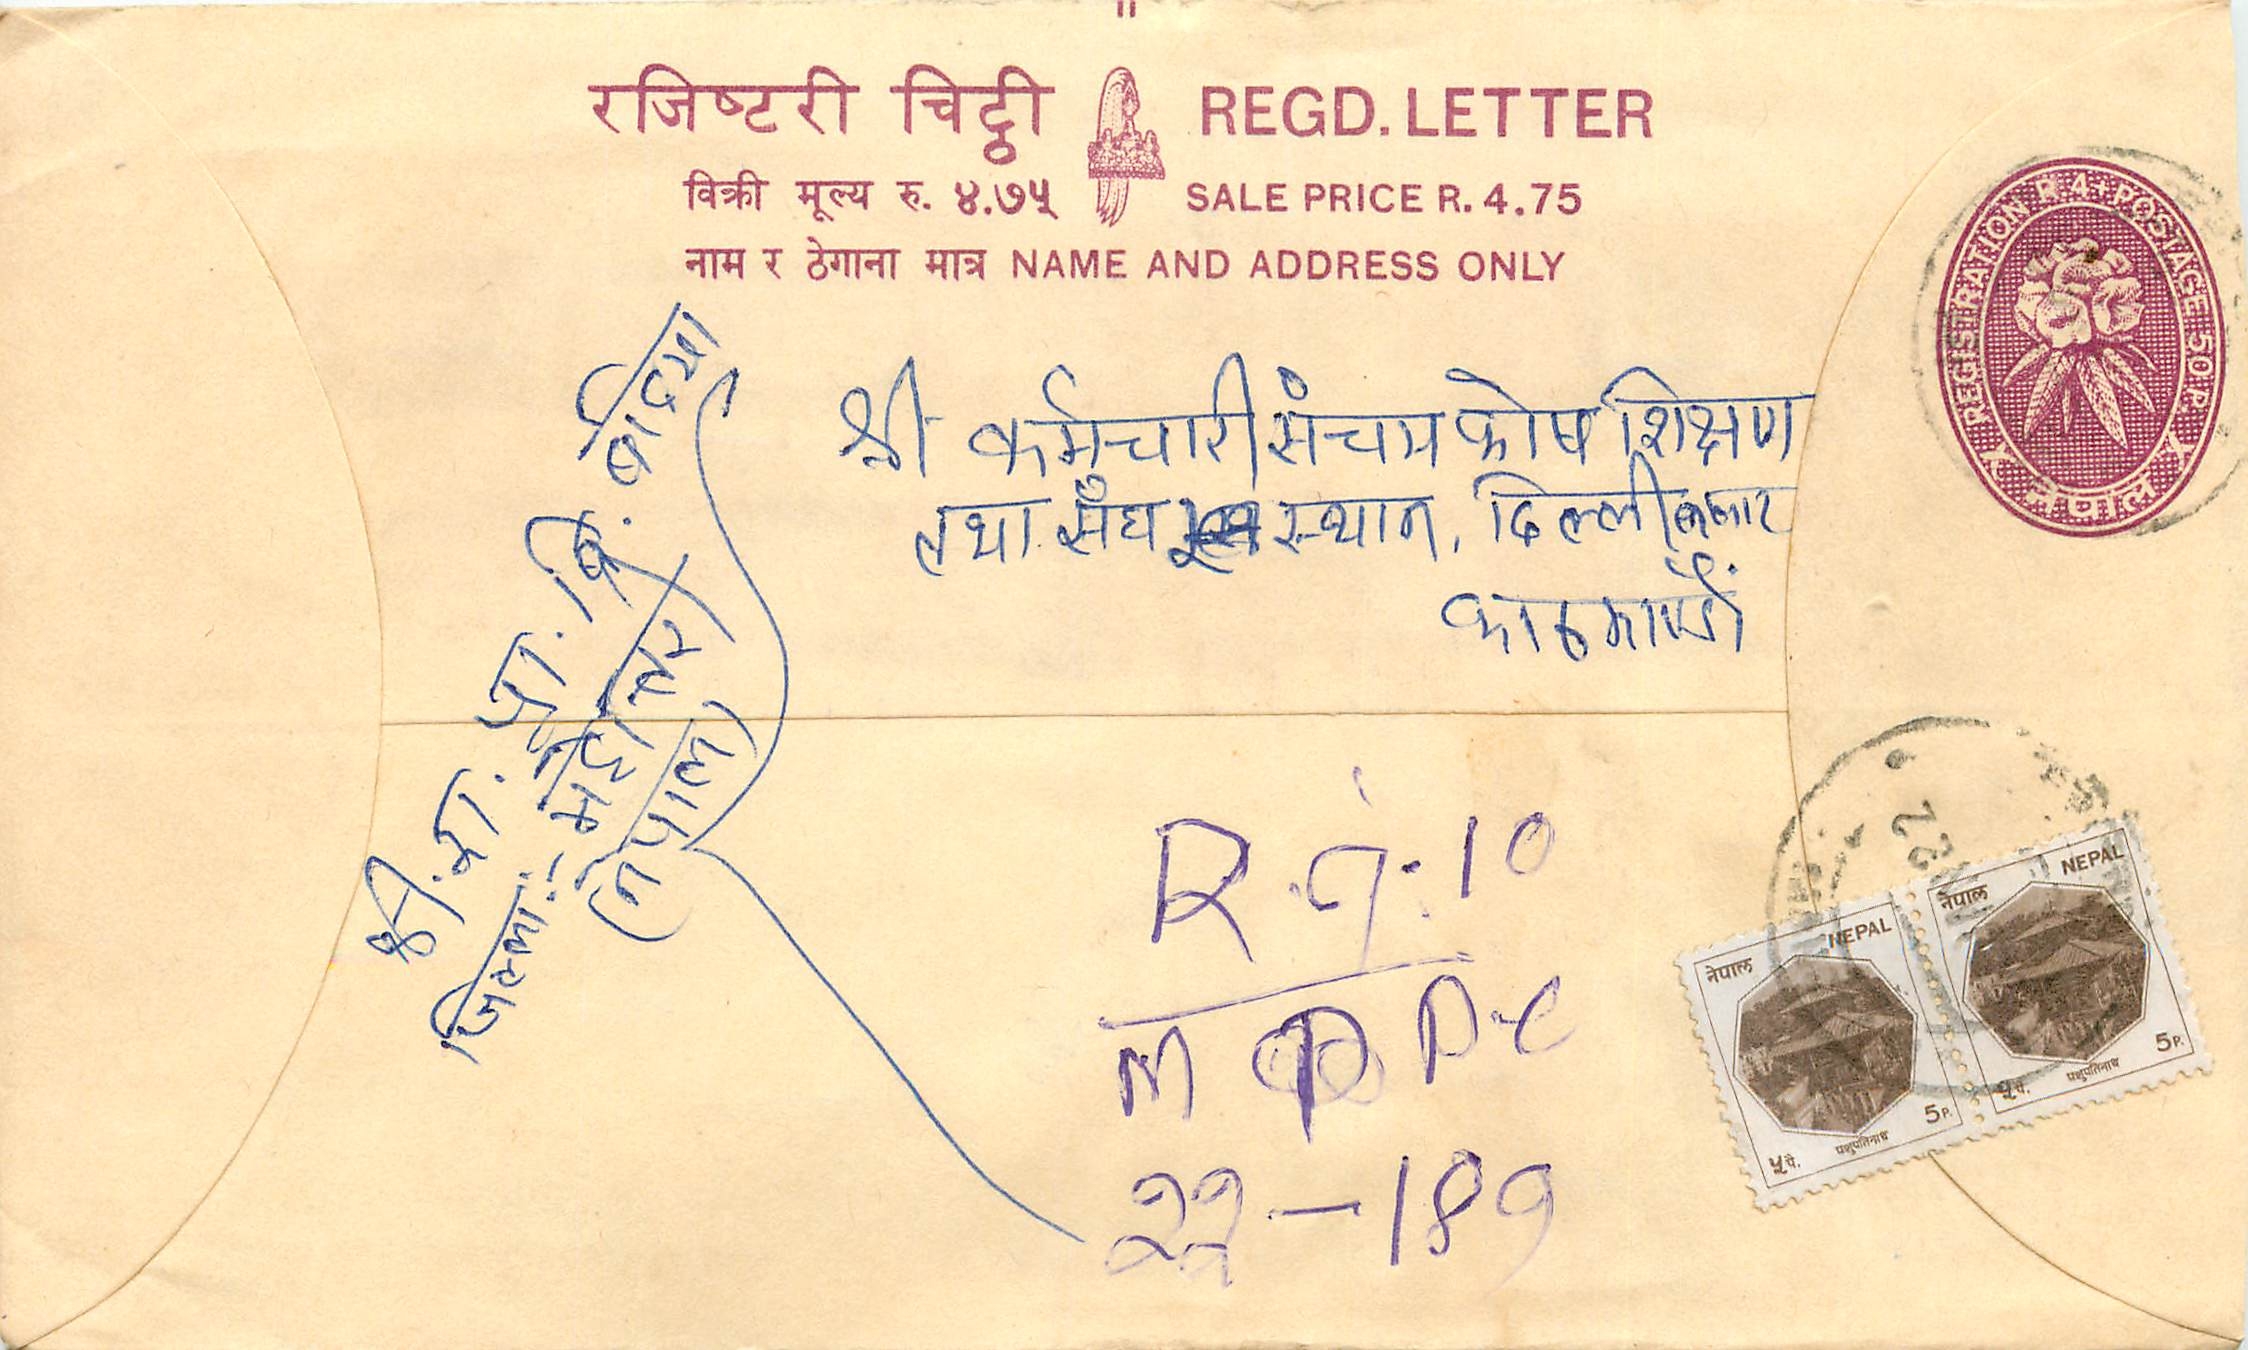 रजिष्टरी चिठ्ठी REGD. LETTER
विक्री मूल्य रु. ४.७५ SALE PRICE R. 4.75
नाम र ठेगाना मात्र NAME AND ADDRESS ONLY
REGISTRATION R.4+POSTAGE 50 P.
नेपाल
श्री कर्मचारी संचय कोष शिक्षण
तथा संघ स्थान, दिल्ली
काठमाण्डौं
श्री. मा. पा. वि. बर्दिया
जिल्ला:- महोत्तरी
(नेपाल)
R. 10
22-189
नेपाल NEPAL
५ पै. पशुपतिनाथ 5 P.
नेपाल NEPAL
५ पै. पशुपतिनाथ 5 P.